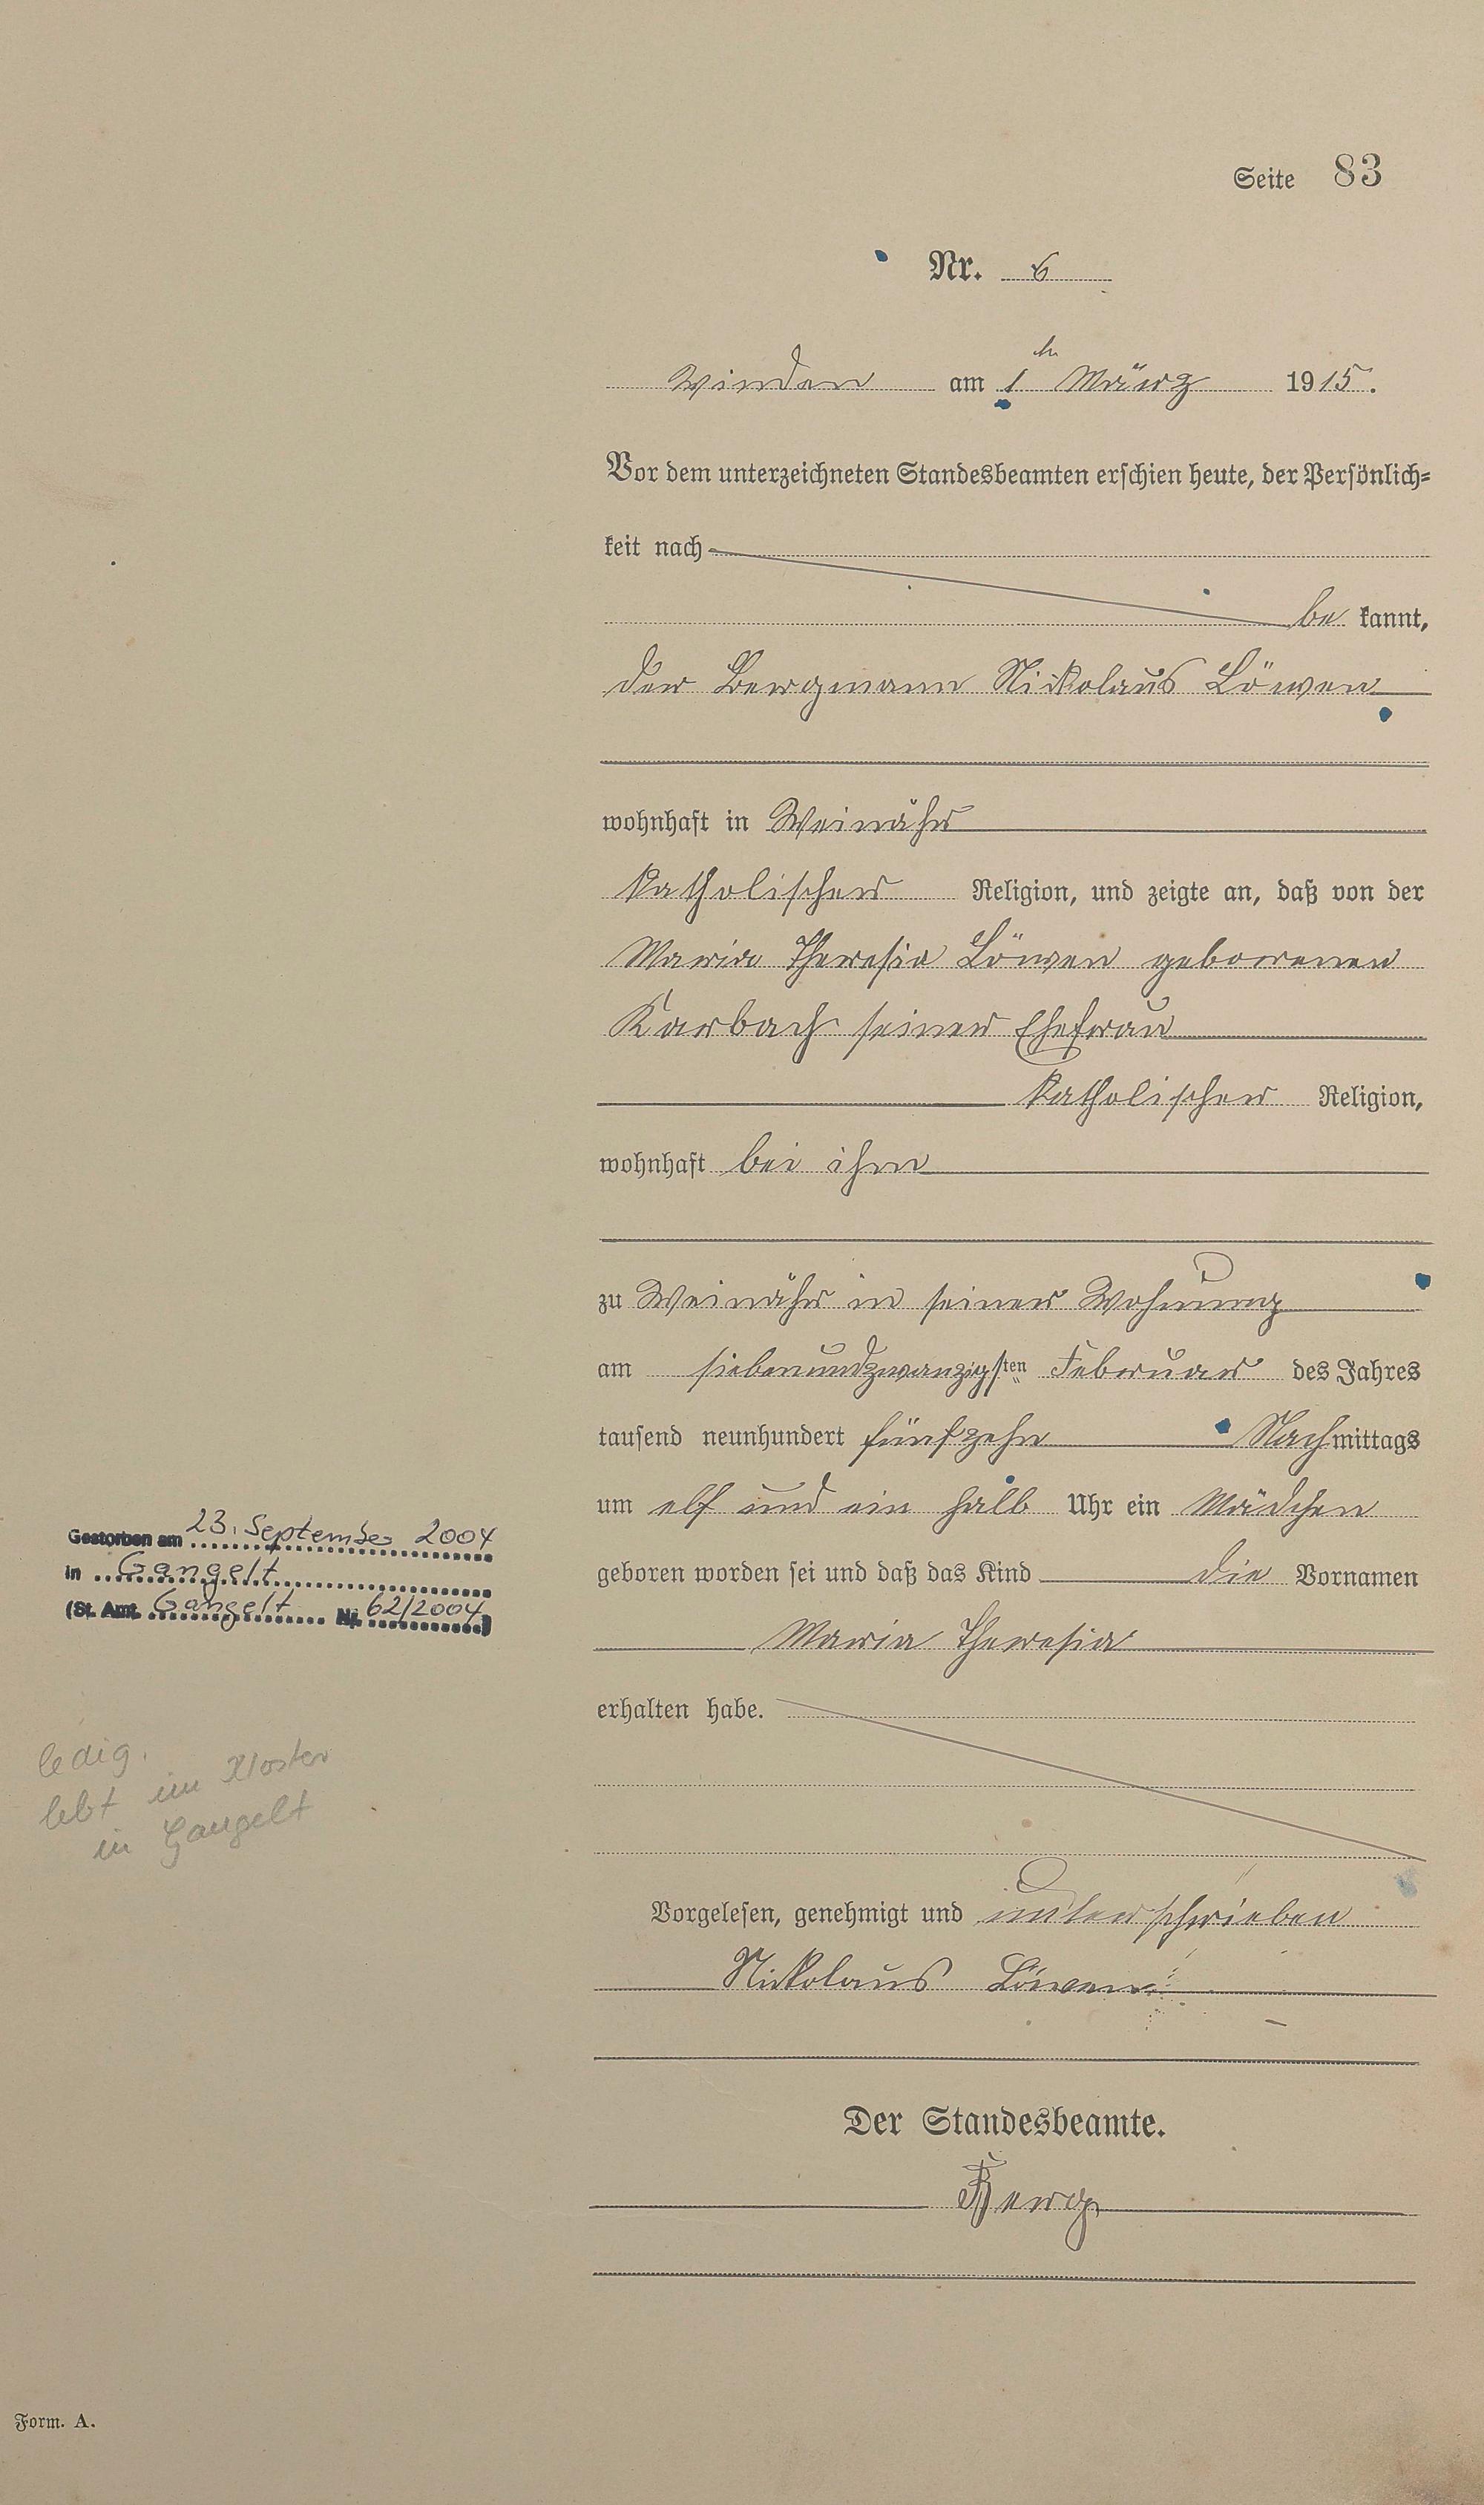 Seite 83
Nr. 6
Winden am 1ten März 1915.
Vor dem unterzeichneten Standesbeamten erschien heute, der Persönlich=
keit nach
be kannt,
der Bergmann Nickolaus Löwen
wohnhaft in Weinähr
katholischer Religion, und zeigte an, daß von der
Maria Theresia Löwen geborenen
Karbach seiner Ehefrau
katholischer Religion,
wohnhaft bei ihm
zu Weinähr in seiner Wohnung
am siebenundzwanzigsten Februar des Jahres
tausend neunhundert fünfzehn Nachmittags
um elf und ein halb Uhr ein Mädchen
geboren worden sei und daß das Kind die Vornamen
Maria Theresia
erhalten habe.
Vorgelesen, genehmigt und unterschrieben
Nickolaus Löwen
Der Standesbeamte.
Berg
Gestorben am 23. September 2004
in Gangelt
(St. Amt. Gangelt Nr. 62/2004)
ledig.
lebt im Kloster
in Gangelt
Form. A.